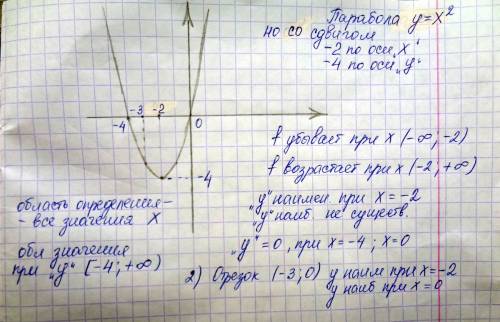 Парабола y=x²
но со сдвигом
-2 по оси „x"
-4 по оси „y"
-4
-3
-2
0
-4
f убывает при x (-∞; -2)
f возрастает при x (-2; +∞)
„y" наимен при x = -2
„y" наиб не существ.
„y" = 0, при x = -4; x=0
область определения -
- все значения X
обл значения
при „y" [-4; +∞)
2) Отрезок (-3; 0) y наим при x=-2
y наиб при x=0